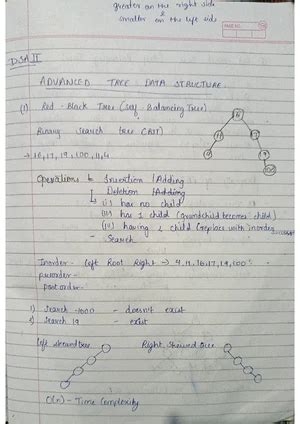 greater on the right side
&
smaller on the left side
PAGE NO.
DSA II
ADVANCED TREE DATA STRUCTURE
(1) Red-Black Tree (Self Balancing Tree)
Binary search tree (BST)
→ 16, 17, 19, 100, 11, 4
Operations Insertion / Adding
Deletion / Adding
(i) has no child
(ii) has 1 child (grandchild becomes child)
(iii) having 2 child (replace with inorder
- Search
Inorder - Left Root Right → 4, 11, 16, 17, 19, 100
preorder -
post order -
1) Search -1000 - doesn't exist
2) Search 19 - exist
Left skewed tree Right skewed tree
O(n) - Time Complexity